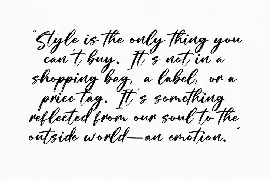 "Style is the only thing you
can't buy. It's not in a
shopping bag, a label, or a
price tag. It's something
reflected from our soul to the
outside world—an emotion."